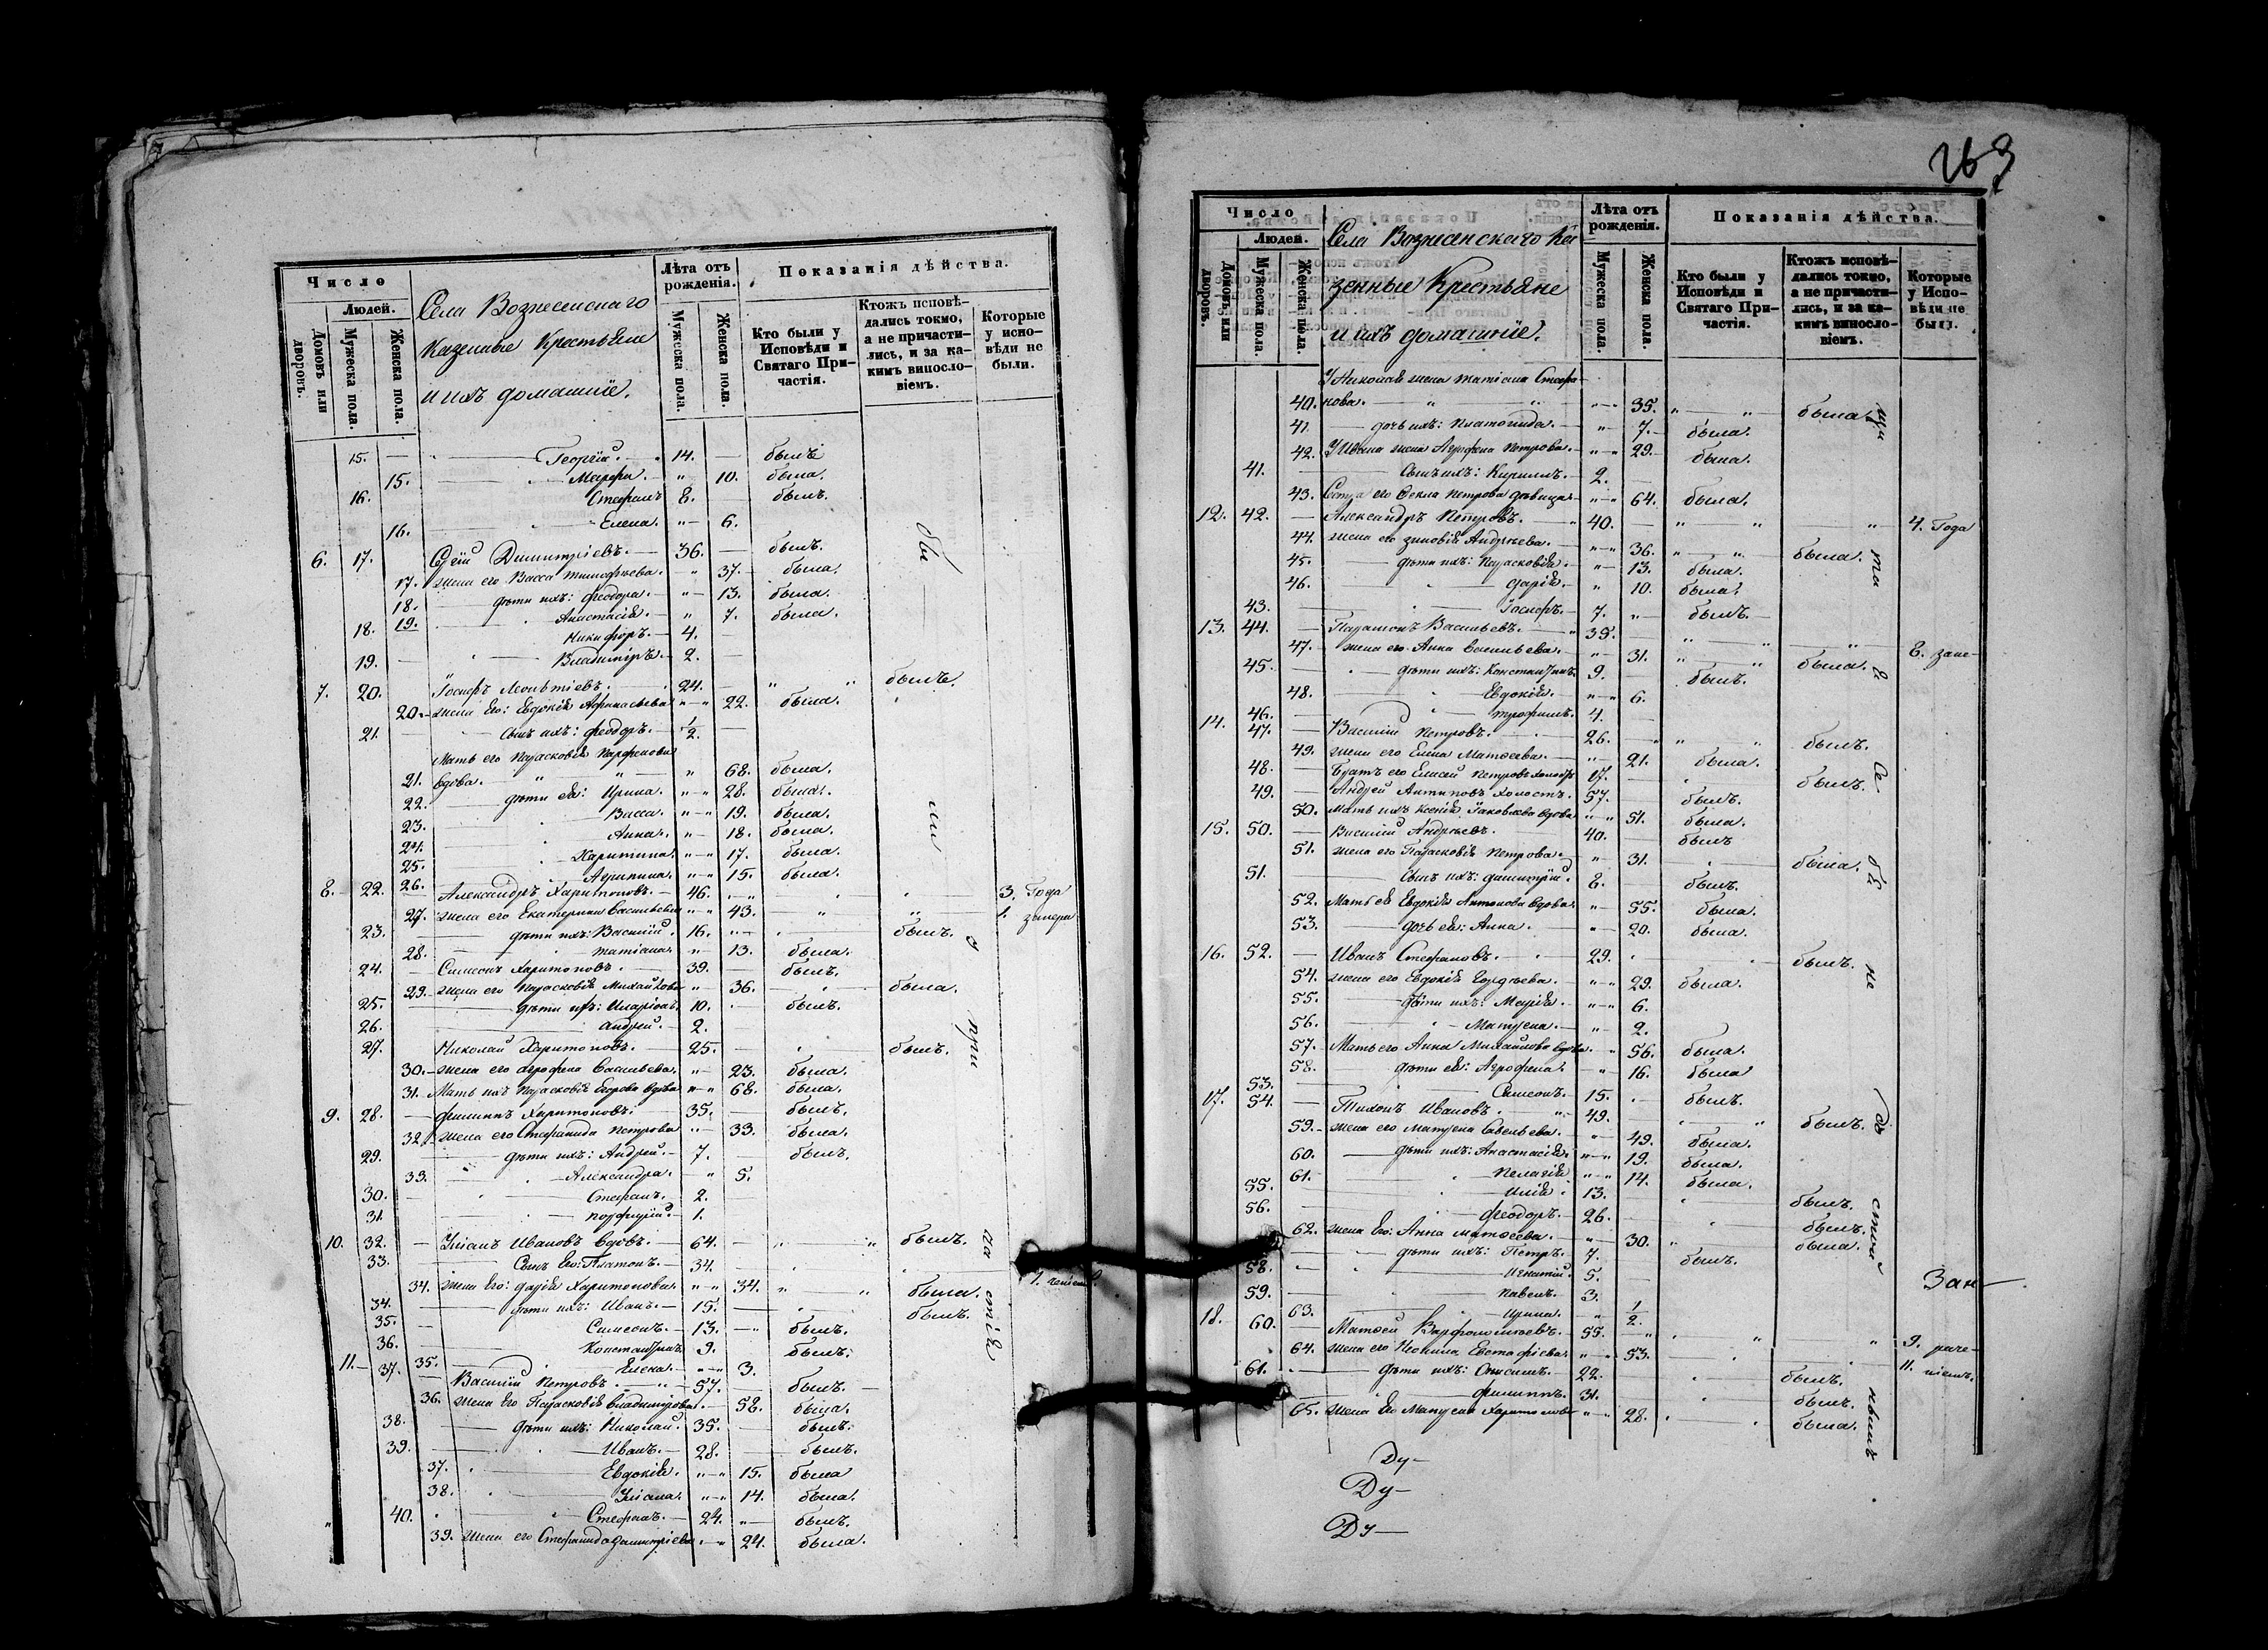 Число
Людей.
Домовъ или дворовъ.
Мужеска пола.
Женска пола.
Села Вознесенскаго
Казенные Крестьяне
и ихъ домашніе.
Лѣта отъ рожденія.
Мужеска пола.
Женска пола.
Показанія дѣйства.
Кто были у Исповѣди и Святаго При-частія.
Ктожъ исповѣ-дались токмо, а не причасти-лись, и за ка-кимъ виносло-віемъ.
Которые у испо-вѣди не были.
15. — Георгій. 14. — былъ
15. — Марѳа. " 10. была.
16. Стефанъ 8. — былъ.
16. — Елена. " 6.
6. 17. Сергій Димитріевъ. 36. — былъ.
17. жена его Васса Тимофѣева. " 37. была.
18. дѣти ихъ: Ѳеодора. " 13. была.
19. Анастасія. " 7. была.
18. Никифоръ. 4. —
19. — Владиміръ. 2. —
7. 20. Іосифъ Леонтіевъ. 24. — " " былъ.
20. жена Его: Евдокія Афанасьева " " 22. была.
21. — сынъ ихъ: Ѳеодоръ. 1/2. —
Мать его Парасковія Парфенова
21. вдова. " " " 68. была.
22. дѣти ея: Ирина. " " 28. была.
23. Васса. " " 19. была.
24. Анна. " 18. была.
25. Харитина. " " 17. была.
26. Агрипина. " " 15. была.
8. 22. Александръ Харитоновъ. 46. " " 3. Года
27. жена его Екатерина Васильева " " 43. " " 1.
23. дѣти ихъ: Василій. 16. " былъ.
28. Татіана. " 13. была.
24. — Симеонъ Харитоновъ. 39. — былъ.
29. жена его Парасковія Михайлова " 36. " была.
25. дѣти ихъ: Иларіонъ. 10. былъ.
26. Андрей. 2.
27. Николай Харитоновъ. 25. " былъ.
30. жена его Агрофена Васильева. " 23. была.
31. Мать ихъ Парасковія Егорова вдова " " 68. была.
9. 28. — Филиппъ Харитоновъ: 35. — былъ.
32. жена его Стефанида Петрова " 33. была.
29. дѣти ихъ: Андрей. 7. — былъ.
33. Александра. " 5.
30. — Стефанъ. 2.
31. — Порфирій. 1.
10. 32. — Уліанъ Ивановъ вдовъ. 64. " " былъ.
33. — Сынъ Его: Платонъ. 34. " "
34. жена Его: Дарія Харитонова. " " 34. " " была.
34. дѣти ихъ: Иванъ. 15. " былъ.
35. — Симеонъ. 13. " былъ.
36. Константинъ 9. былъ.
35. — Елена. " " 3.
11. 37. — Василій Петровъ. 57. — былъ.
36. жена Его Парасковія Владимірова. — 52. была.
38. дѣти ихъ: Николай. 35. — былъ.
39. — Иванъ. 28. — былъ.
37. Евдокія. " " 15. была
38. Уліана. " " 14. была.
40. " Стефанъ. 24. " былъ.
39. жена его Стефанида Димитріева " 24. была.
бы
ли
у
при
ча
стія
263
Число
Людей.
Домовъ или дворовъ.
Мужеска пола.
Женска пола.
Села Вознесенскаго Ка
зенные Крестьяне
и ихъ домашніе.
Лѣта отъ рожденія.
Мужеска пола.
Женска пола.
Показанія дѣйства.
Кто были у Исповѣди и Святаго При-частія.
Ктожъ исповѣ-дались токмо, а не причасти-лись, и за ка-кимъ виносло-віемъ.
Которые у Испо-вѣди не были.
У Николая жена Татіана Стефа-
40. нова. " " " 35. " " была.
41. — дочь ихъ: Платонида. " 7. была.
42. У Ивана жена Агрофена Петрова. " " 29. была.
41. — Сынъ ихъ: Кирилъ. 2. —
43. Сестра его Ѳекла Петрова дѣвица " " 64. была.
12. 42. — Александръ Петровъ. 40. — " " " 4. Года
44. жена его Зиновія Андрѣева. " " 36. " " была.
45. дѣти ихъ: Парасковія. " 13. была.
46. Дарія. " 10. была.
43. — Іосифъ. 7. " былъ.
13. 44. — Платонъ Васильевъ. 39. — " " " 8. зане-
47. жена его Анна Васильева. " 31. " " была.
45. дѣти ихъ: Константинъ. 9. — былъ.
48. — Евдокія. " " 6.
46. Трофимъ. 4. —
14. 47. — Василій Петровъ. 26. " " былъ.
49. жена его Елена Матѳеева. " 21. была.
48. — Братъ его Елисей Петровъ холостъ 17. " былъ.
49. — Андрей Антиповъ холостъ. 57. — былъ.
50. Мать ихъ Ксенія Іаковлева вдова " " 51. была.
15. 50. — Василій Андрѣевъ. 40. былъ
51. жена его Парасковія Петрова. " 31. " была.
51. — Сынъ ихъ: Димитрій. 8. — былъ.
52. Мать ея Евдокія Антонова вдова. " 55. была.
53. — дочь ея: Анна. " 20. была.
16. 52. — Иванъ Стефановъ. 29. " " былъ.
54. жена его Евдокія Гордѣева. " " 29. была.
55. дѣти ихъ: Марія. " " 6.
56. — Матрена. " 2.
57. Мать его Анна Михайлова вдова. " 56. была.
58. дѣти ея: Агрофена. " 16. была
53. — Симеонъ. 15. " былъ.
17. 54. — Тихонъ Ивановъ. 49. " " былъ.
59. жена его Матрена Савельева. " 49. была.
60. дѣти ихъ: Анастасія. " " 19. была.
61. Пелагія " " 14. была.
55. Илія. 13. " былъ.
56. Ѳеодоръ. 26. " былъ.
62. жена Его: Анна Матѳеева. " 30. " была.
дѣти ихъ: Петръ. 7. былъ.
58. — Игнатій. 5.
59. — Павелъ. 3. Зан—
63. — Ирина. " 1/2.
18. 60. — Матѳей Варфоломѣевъ. 55. " " " 9. раче-
64. жена его Неонила Евстафіева. " " 53. " " 11. ніемъ.
61. — дѣти ихъ: Онисимъ. 22. " былъ.
Филиппъ. 31. " былъ.
65. жена Его Матрена Харитонова " " 28. " " была.
Ду—
Ду—
Ду—